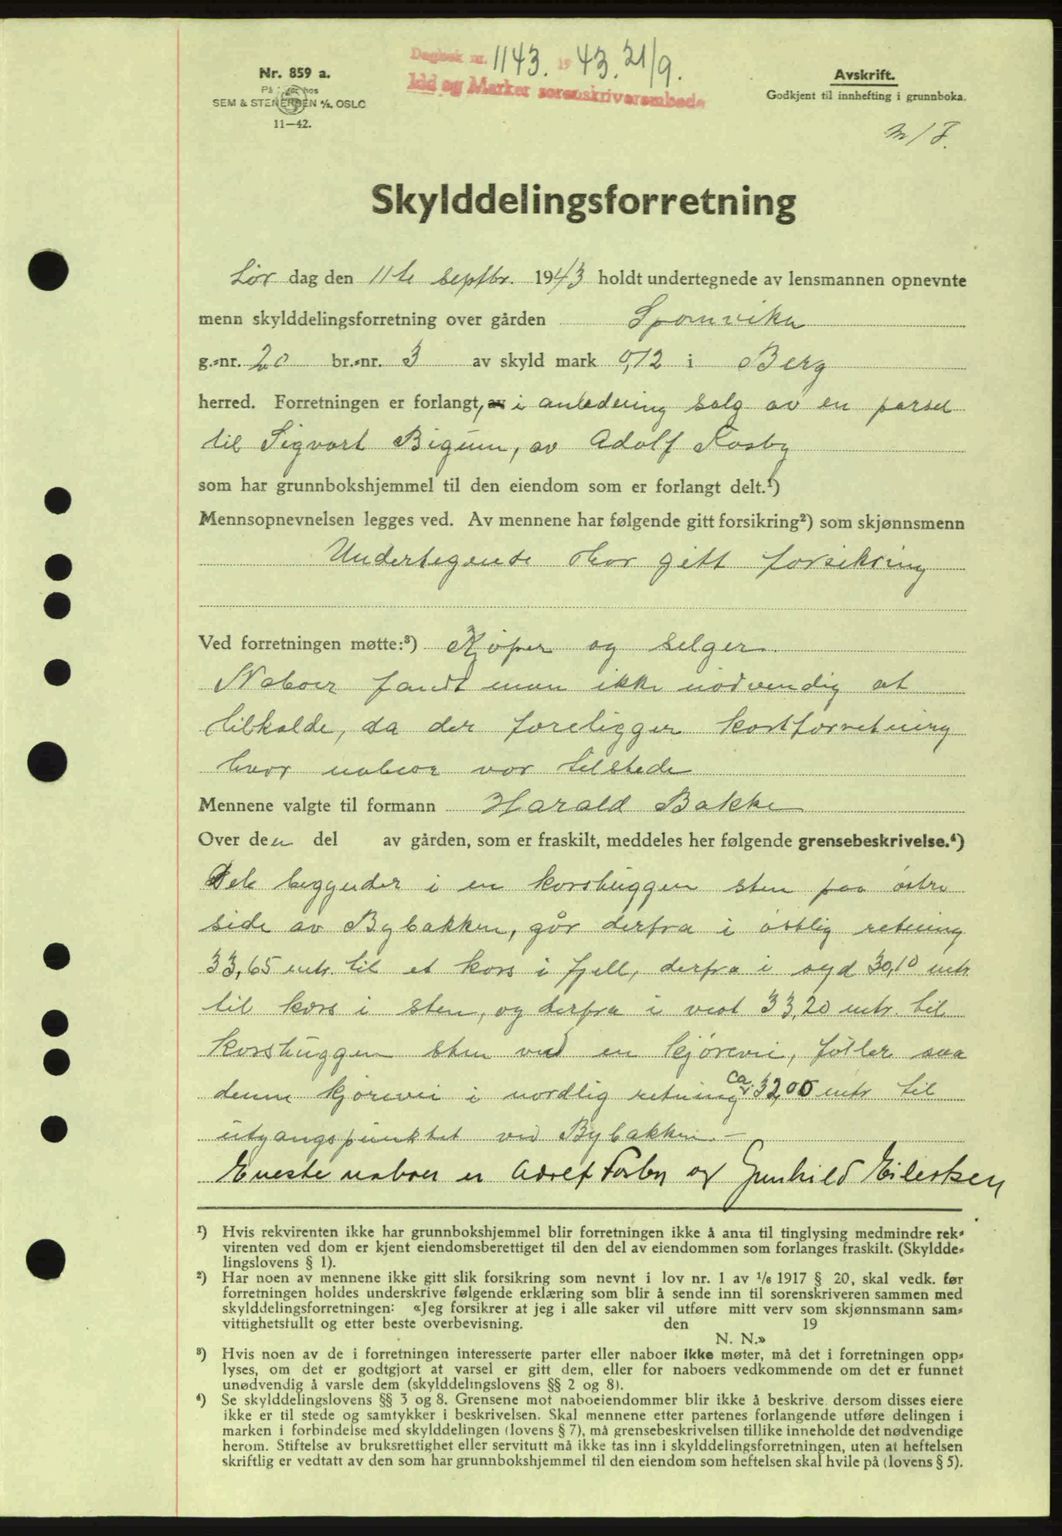 Dagbok nr. 1143. 1943. 21/9.
Idd og Marker sorenskriverembede
Nr. 859 a.
SEM & STENERSEN A/S. OSLO
11—42.
Avskrift.
Godkjent til innhefting i grunnboka.
Skylddelingsforretning
Lør dag den 11te septbr. 1943 holdt undertegnede av lensmannen opnevnte
menn skylddelingsforretning over gården Sponvika
g.=nr. 20 br.=nr. 3 av skyld mark 0,12 i Berg
herred. Forretningen er forlangt, av i anledning salg av en parsel
til Sigvart Bigum, av Adolf Fosby
som har grunnbokshjemmel til den eiendom som er forlangt delt.¹)
Mennsopnevnelsen legges ved. Av mennene har følgende gitt forsikring²) som skjønnsmenn
Undertegende har gitt forsikring
Ved forretningen møtte:³) Kjøper og selger.
Naboer fandt man ikke nødvendig at
tilkalde, da der foreligger kartforretning
hvor naboer var tilstede
Mennene valgte til formann Harald Bakke
Over den del av gården, som er fraskilt, meddeles her følgende grensebeskrivelse.⁴)
Delet begynder i en korshuggen sten paa østre
side av Bybakken, går derfra i østlig retning
33,65 mtr. til et kors i fjell, derfra i syd 30,10 mtr
til kors i sten, og derfra i vest 33,20 mtr. til
korshuggen sten ved en kjørevei, føller saa
denne kjørevei i nordlig retning ca. 32,00 mtr til
utgangspunktet ved Bybakken. —
Eneste naboer er Adolf Fosby og Gunhild Eilertsen
¹) Hvis rekvirenten ikke har grunnbokshjemmel blir forretningen ikke å anta til tinglysing medmindre rek=
virenten ved dom er kjent eiendomsberettiget til den del av eiendommen som forlanges fraskilt. (Skyldde=
lingslovens § 1).
²) Har noen av mennene ikke gitt slik forsikring som nevnt i lov nr. 1 av 1/6 1917 § 20, skal vedk. før
forretningen holdes underskrive følgende erklæring som blir å sende inn til sorenskriveren sammen med
skylddelingsforretningen: «Jeg forsikrer at jeg i alle saker vil utføre mitt verv som skjønnsmann sam=
vittighetsfullt og etter beste overbevisning. den 19
N. N.»
³) Hvis noen av de i forretningen interesserte parter eller naboer ikke møter, må det i forretningen opp=
lyses, om det er godtgjort at varsel er gitt dem, eller for naboers vedkommende om det er funnet
unødvendig å varsle dem (skylddelingslovens §§ 2 og 8).
⁴) Se skylddelingslovens §§ 3 og 8. Grensene mot naboeiendommer blir ikke å beskrive dersom disses eiere
ikke er til stede og samtykker i beskrivelsen. Skal mennene etter partenes forlangende utføre delingen i
marken i forbindelse med skylddelingen (lovens § 7), må grensebeskrivelsen tillike inneholde det nødvendige
herom. Stiftelse av bruksrettighet eller servitutt må ikke tas inn i skylddelingsforretningen, uten at heftelsen
skriftlig er vedtatt av den som har grunnbokshjemmel til den eiendom som heftelsen skal hvile på (lovens § 5).